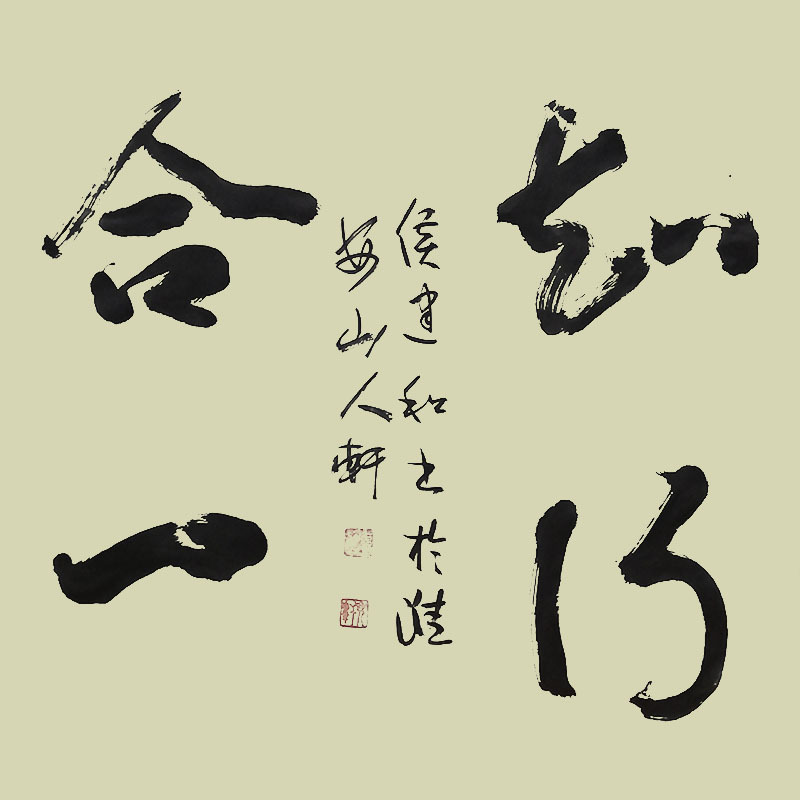 知行
合一
侯建和书於淮
安山人軒